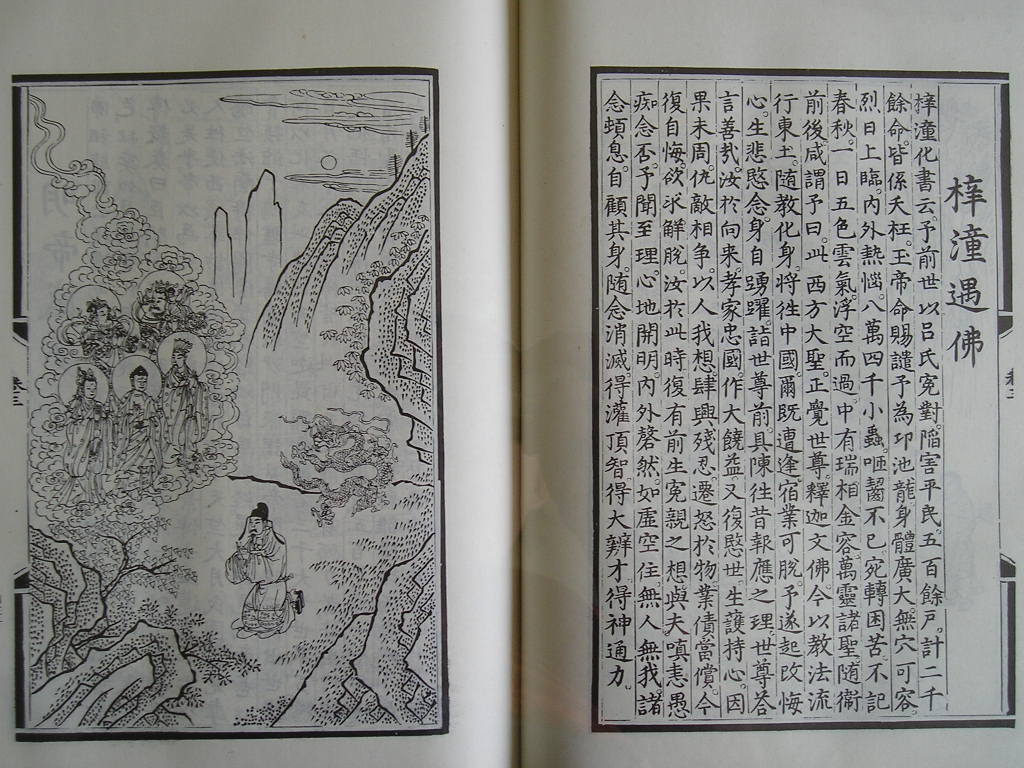 梓潼遇佛
梓潼化書云。予前世以呂氏冤對。陷害平民五百餘戶。計二千
餘命。皆係夭枉。玉帝命賜譴予為邛池龍。身體廣大。無穴可容。
烈日上臨。內外熱惱。八萬四千小蟲。咂齧不已。宛轉困苦。不記
春秋。一日五色雲氣。浮空而過。中有瑞相金容。萬靈諸聖。隨衛
前後。咸謂予曰。此西方大聖。正覺世尊。釋迦文佛。今以教法流
行東土。隨教化身。將往中國。爾既遭逢。宿業可脫。予遂起改悔
心。生悲愍念。身自踴躍。詣世尊前。具陳往昔報應之理。世尊答
言。善哉。汝於向來孝家忠國。作大饒益。又復愍世。生護持心。因
果未周。仇敵相爭。以人我想。肆興殘忍。遷怒於物。業債當償。今
復自悔。欲求解脫。汝於此時。復有前生冤親之想。與夫嗔恚愚
痴念否。予聞至理。心地開明。內外罄然。如虛空住。無人無我。諸
念頓息。自顧其身。隨念消滅。得灌頂智。得大辨才。得神通力。
卷三